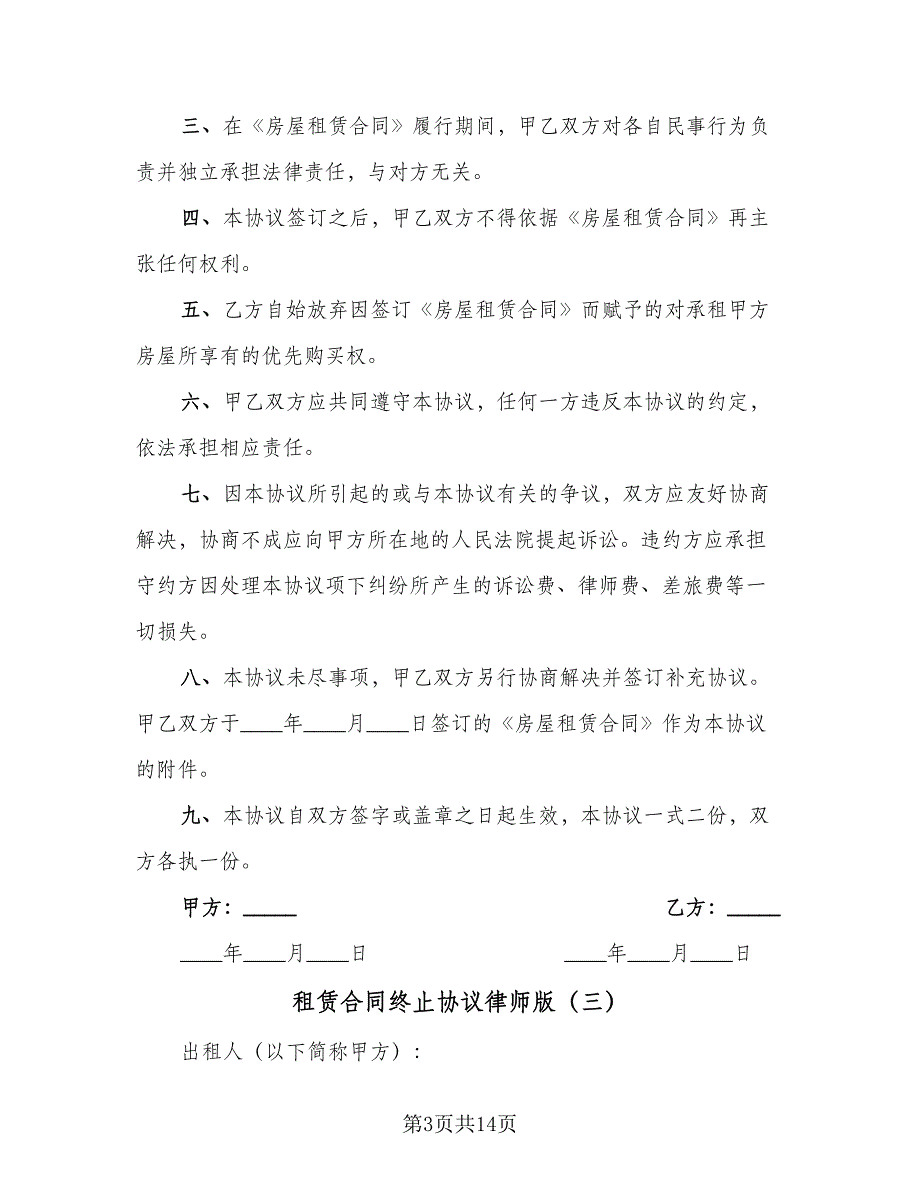 三、在《房屋租赁合同》履行期间，甲乙双方对各自民事行为负
责并独立承担法律责任，与对方无关。
四、本协议签订之后，甲乙双方不得依据《房屋租赁合同》再主
张任何权利。
五、乙方自始放弃因签订《房屋租赁合同》而赋予的对承租甲方
房屋所享有的优先购买权。
六、甲乙双方应共同遵守本协议，任何一方违反本协议的约定，
依法承担相应责任。
七、因本协议所引起的或与本协议有关的争议，双方应友好协商
解决，协商不成应向甲方所在地的人民法院提起诉讼。违约方应承担
守约方因处理本协议项下纠纷所产生的诉讼费、律师费、差旅费等一
切损失。
八、本协议未尽事项，甲乙双方另行协商解决并签订补充协议。
甲乙双方于____年____月____日签订的《房屋租赁合同》作为本协议
的附件。
九、本协议自双方签字或盖章之日起生效，本协议一式二份，双
方各执一份。
甲方：_____ 乙方：_____
____年____月____日 ____年____月____日
租赁合同终止协议律师版（三）
出租人（以下简称甲方）：
第3页共14页